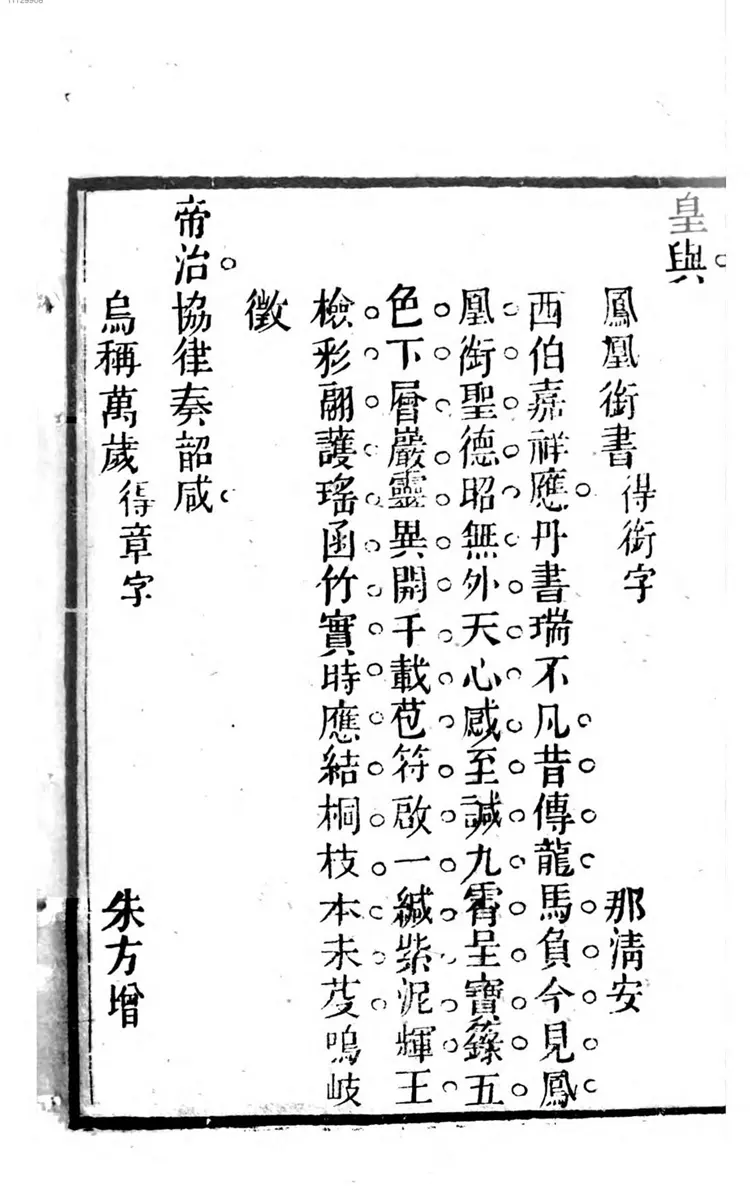 11129908
皇與
鳳凰銜書 得銜字 那清安
西伯嘉祥應丹書瑞不凡昔傳龍馬負今見鳳
凰銜聖德昭無外天心感至諴九霄呈寶籙五
色下層巖靈異開千載苞符啟一緘紫泥輝王
檢彩翮護瑤函竹實時應結桐枝本未芟鳴岐
徵
帝治協律奏韶咸
烏稱萬歲 得章字 朱方增